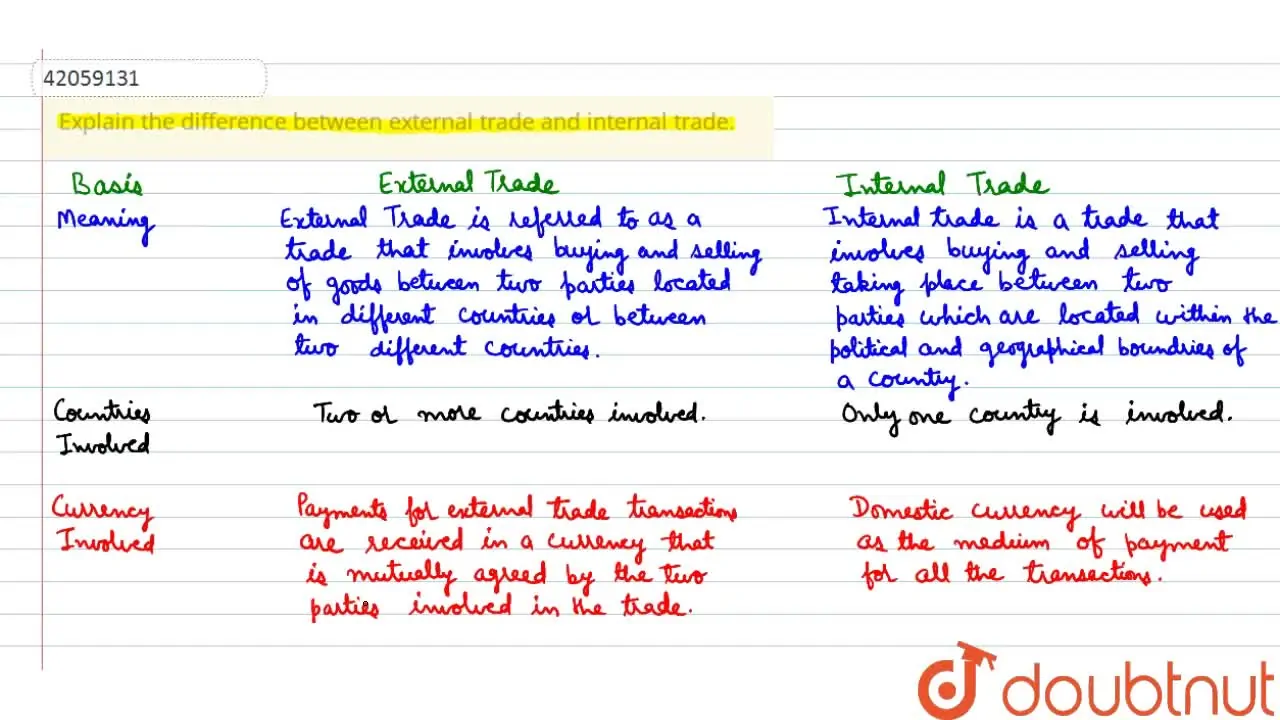 42059131
Explain the difference between external trade and internal trade.
Basis
External Trade
Internal Trade
Meaning
External Trade is referred to as a
trade that involves buying and selling
of goods between two parties located
in different countries or between
two different countries.
Internal trade is a trade that
involves buying and selling
taking place between two
parties which are located within the
political and geographical boundries of
a country.
Countries
Involved
Two or more countries involved.
Only one country is involved.
Currency
Involved
Payments for external trade transactions
are received in a currency that
is mutually agreed by the two
parties involved in the trade.
Domestic currency will be used
as the medium of payment
for all the transactions.
doubtnut